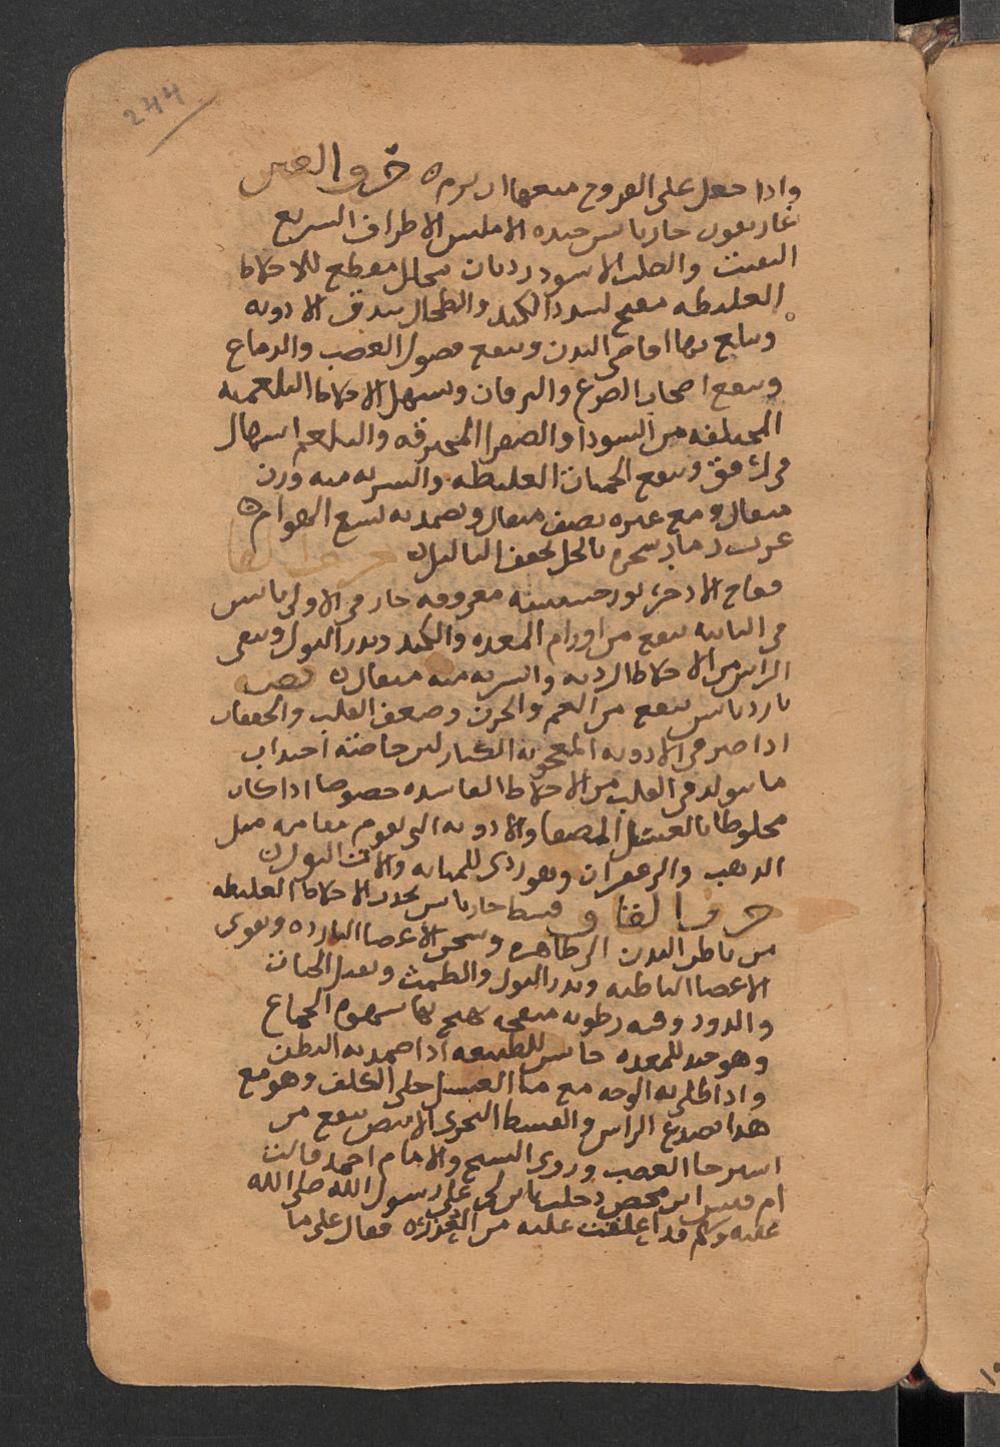 244
واذا جعل على القروح منعها ان ترم ه حرف الغين
غاريقون حار يابس جيده الاملس الاطراف السريع
التفتت والصلب الاسود رديان محلل مقطع للاخلاط
الغليظه مفتح لسدد الكبد والطحال يبدرق الادويه
ويبلغ بها اقاصى البدن وينفع فضول العصب والدماغ
وينفع اصحاب الصرع واليرقان ويسهل الاخلاط البلغميه
المختلفه من السودا والصفرا المحترقه والبلغم اسهال
فى رفق وينفع الحميات الغليظه والشربه منه وزن
مثقال ومع غيره نصف مثقال ويضمد به لسع الهوام ه
غرب رماد شجره بالخل يجفف الثاليل ه حرف الفا
فقاح الاذخر نور حشيشه معروفه حار فى الاولى يابس
فى الثانيه ينفع من اورام المعده والكبد ويدر البول وينقى
الراس من الاخلاط الرديه والشربه منه مثقال ه فضه
بارد يابس ينفع من الغم والحزن وضعف القلب والخفقان
اذا صير فى الادويه المعجونه الكبار لير خاصته اجتذاب
ما يتولد فى القلب من الاخلاط الفاسده خصوصا اذا كان
مخلوطا بالعسل المصفا والادويه التى تقوم مقامه مثل
الذهب والزعفران وهو ردى للمثانه والات البول ه
حرف القاف قسط حار يابس يجذب الاخلاط الغليظه
من باطن البدن الى ظاهره ويسخن الاعضا البارده ويقوى
الاعضا الباطنه ويدر البول والطمث ويقتل الحيات
والدود وفيه رطوبه منفخه يهيج بها شهوه الجماع
وهو جيد للمعده حابس للطبيعه اذا ضمد به البطن
واذا طلى به الوجه مع ما العسل جلى الكلف وهو مع
هذا يصدع الراس والقسط البحرى الابيض ينفع من
استرخا العصب وروى الشيخ والامام احمد قالت
ام قيس ابن محصن دخلت بابن لى على رسول الله صلى الله
عليه وسلم قد اعلقت عليه من العذره فقال على ما